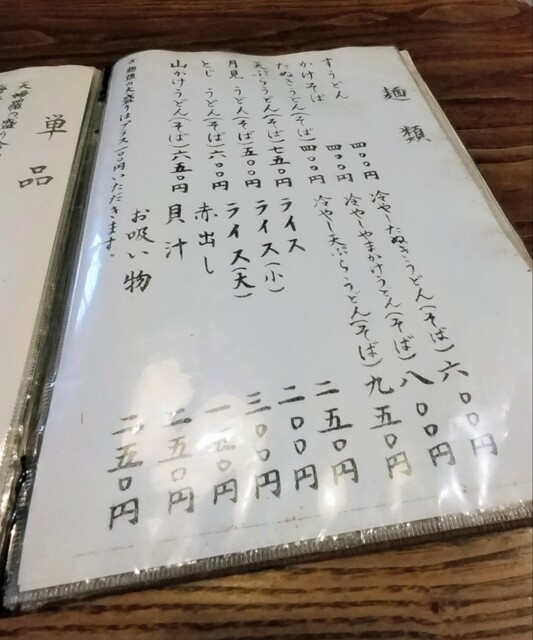 麺類
すうどん 四〇〇円
かけそば 四〇〇円
たぬきうどん(そば) 四〇〇円
天ぷらうどん(そば) 七五〇円
月見うどん(そば) 五〇〇円
とじうどん(そば) 六〇〇円
山かけうどん(そば) 六五〇円
冷やしたぬきうどん(そば) 六〇〇円
冷やしやまかけうどん(そば) 八〇〇円
冷やし天ぷらうどん(そば) 九五〇円
ライス 二五〇円
ライス(小) 二〇〇円
ライス(大) 三〇〇円
赤出し 一五〇円
貝汁 二五〇円
お吸い物 二五〇円
麺類の大盛りはプラス一〇〇円いただきます。
単品
天婦羅の盛り合